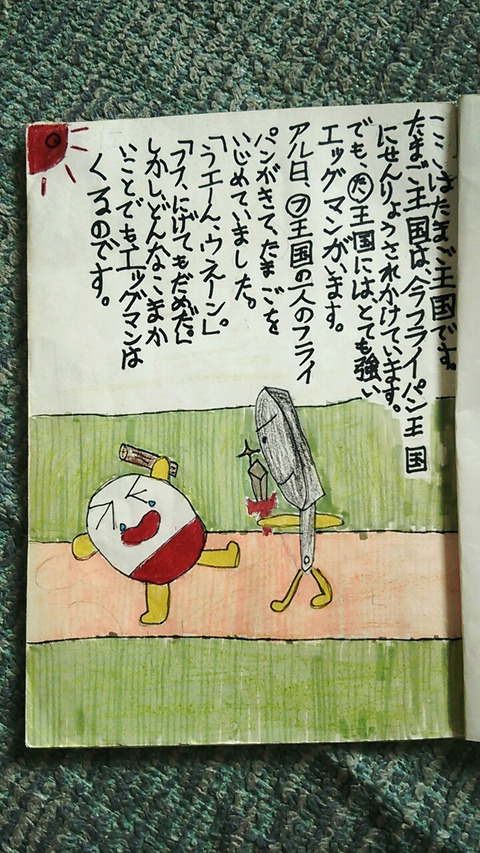 ここはたまご王国です。
たまご王国は、今フライパン王国
にせんりょうされかけています。
でも、㋟王国には、とても強い
エッグマンがいます。
アル日、㋫王国の一人のフライ
パンがきて、たまごを
いじめていました。
「うエーん、ウエーン。」
「フス、にげてもだめだ。」
しかしどんなこまか
いことでもエッグマンは
くるのです。